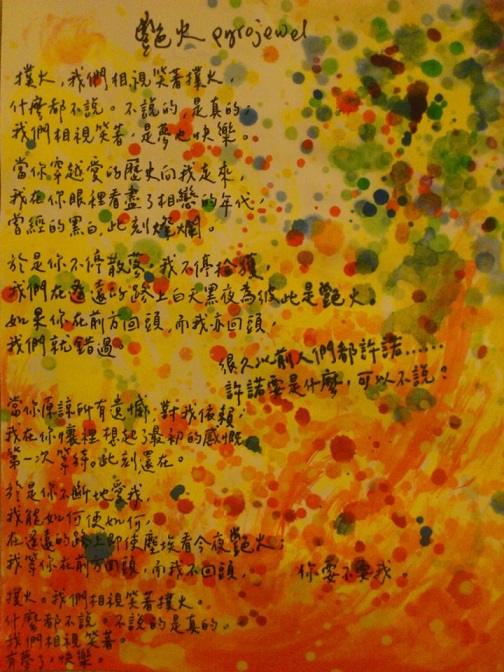 艷火 pyrojewel
撲火，我們相視笑著撲火，
什麼都不說。不說的，是真的；
我們相視笑著，是夢也快樂。
當你穿越愛的歷史向我走來，
我在你眼裡看盡了相戀的年代，
曾經的黑白，此刻燦爛。
於是你不停散夢，我不停拾獲，
我們在遙遠的路上白天黑夜為彼此是艷火。
如果你在前方回頭，而我亦回頭，
我們就錯過。
很久以前人們都許諾……
許諾要是什麼，可以不說？
當你原諒所有遺憾，對我依賴，
我在你懷裡想起了最初的感慨，
第一次等待。此刻還在。
於是你不斷地愛我，
我能如何便如何，
在遙遠的路上即使塵埃看今夜艷火；
我等你在前方回頭，而我不回頭，
你要不要我。
撲火。我們相視笑著撲火。
什麼都不說。不說的是真的。
我們相視笑著。
有夢了，快樂。